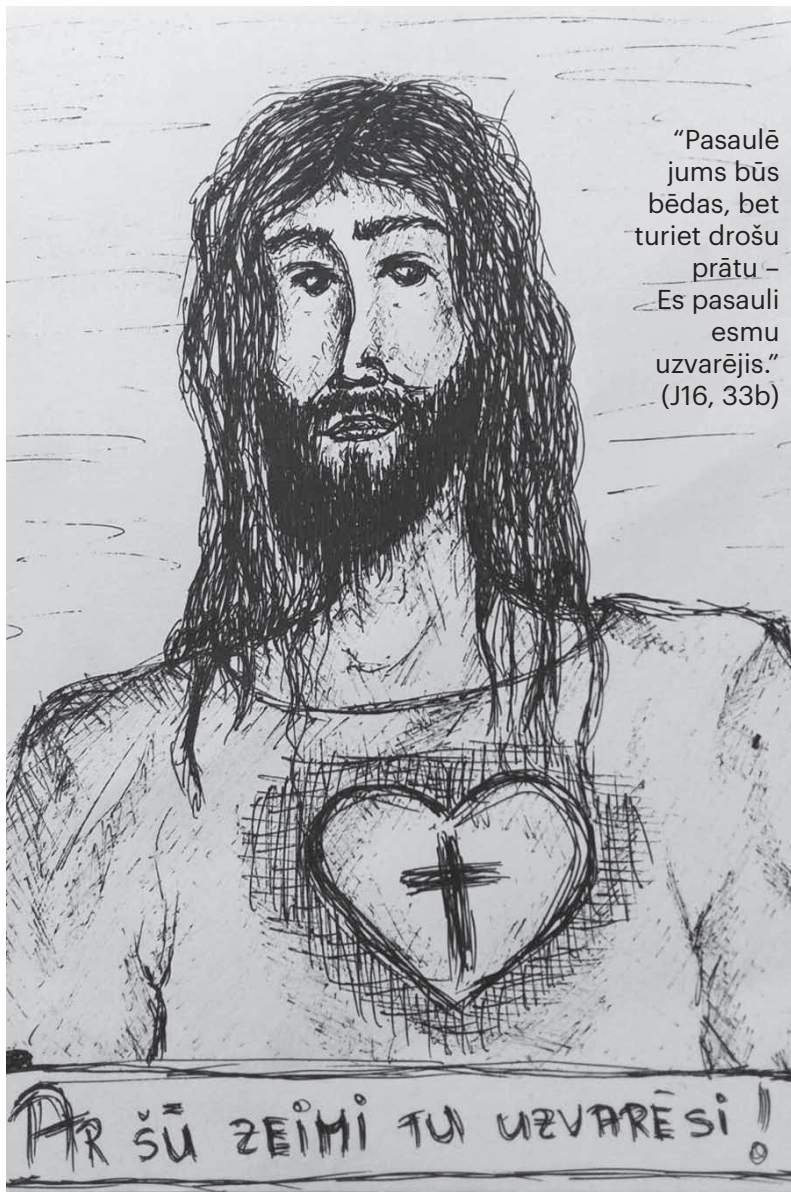 “Pasaulē
jums būs
bēdas, bet
turiet drošu
prātu –
Es pasauli
esmu
uzvarējis.”
(J16, 33b)
Ar šū zeimi tu uzvarēsi!